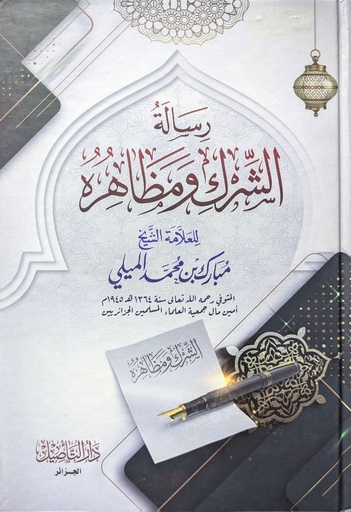 رسالة
الشرك ومظاهره
للعلامة الشيخ
مبارك بن محمد الميلي
المتوفى رحمه الله تعالى سنة ١٣٦٤ھ ١٩٤٥م
أمين مال جمعية العلماء المسلمين الجزائريين
الشرك ومظاهره
دار التأصيل
الجزائر